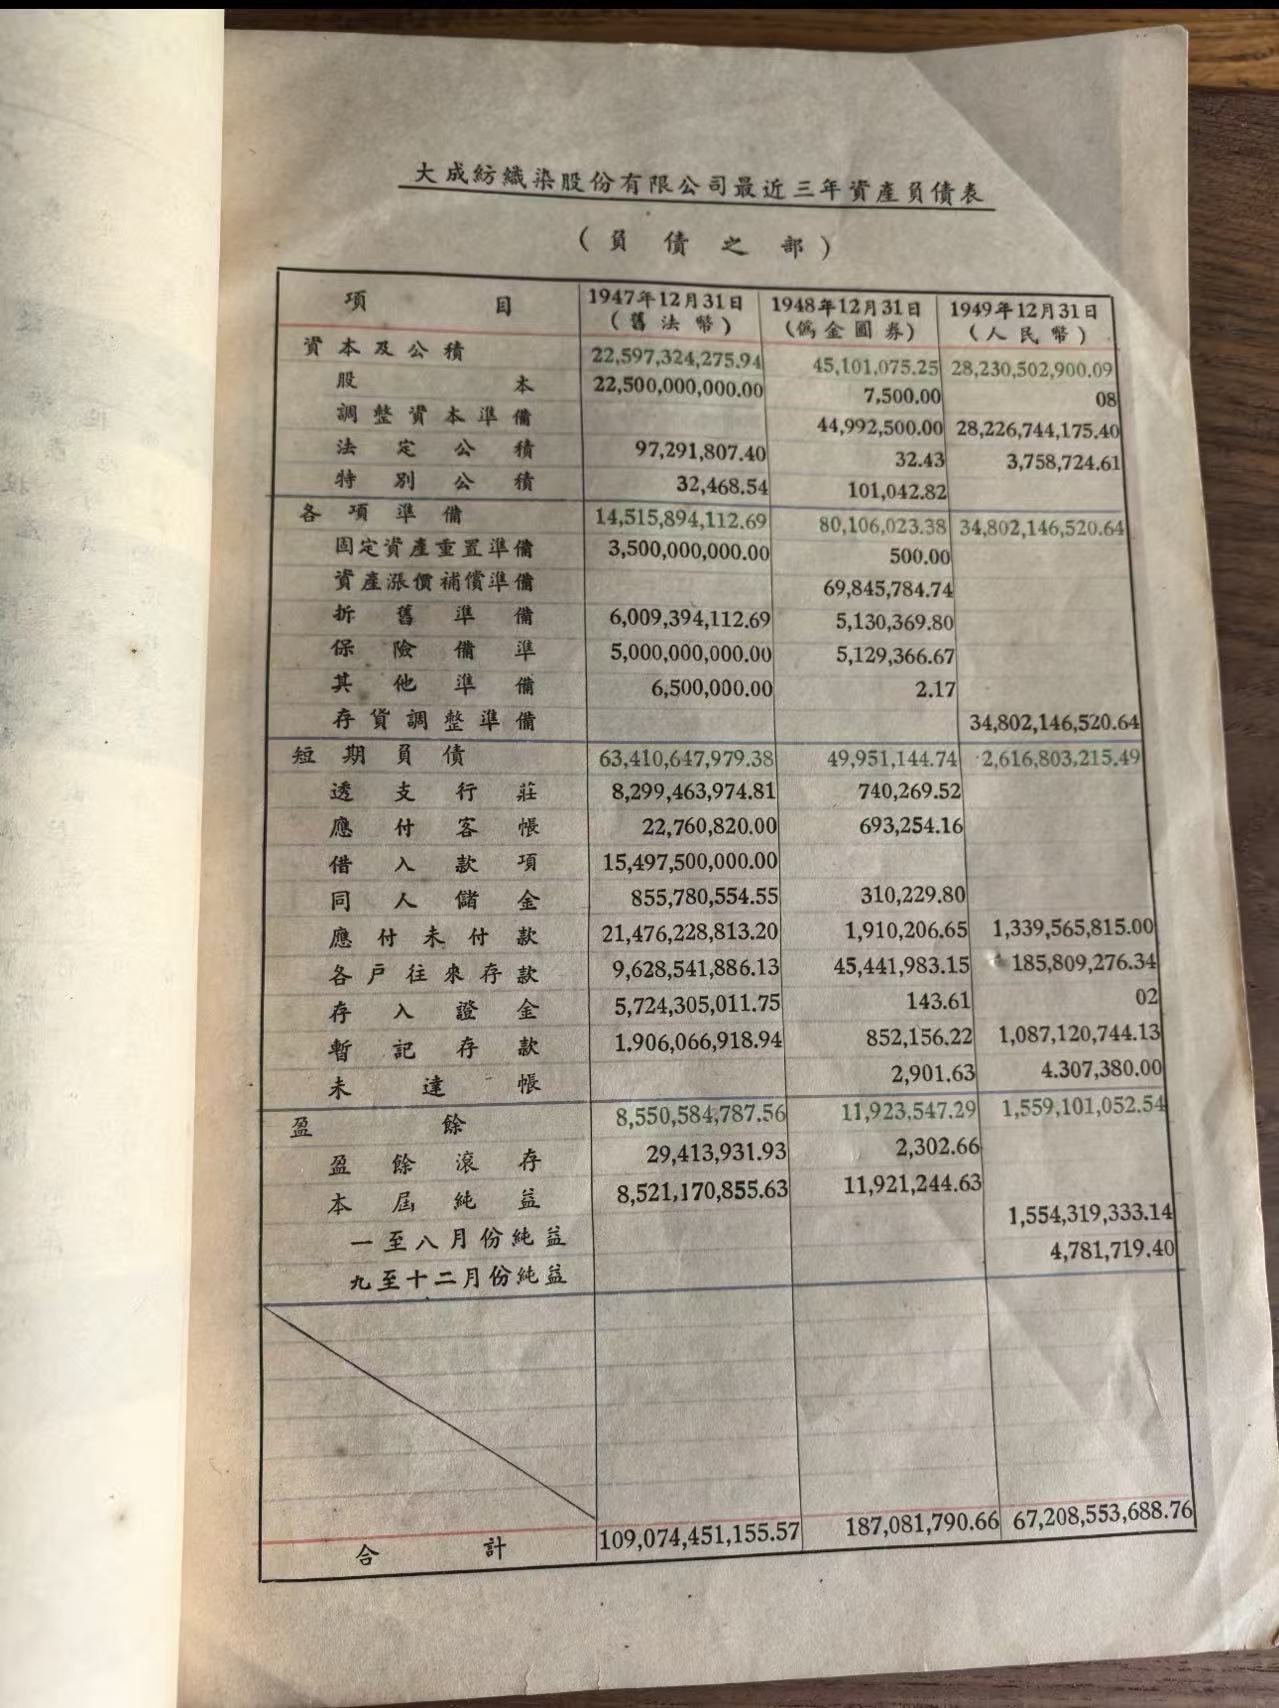 大成紡織染股份有限公司最近三年資產負債表
(負債之部)
項目 1947年12月31日(舊法幣) 1948年12月31日(僞金圓券) 1949年12月31日(人民幣)
資本及公積 22,597,324,275.94 45,101,075.25 28,230,502,900.09
股本 22,500,000,000.00 7,500.00 08
調整資本準備 44,992,500.00 28,226,744,175.40
法定公積 97,291,807.40 32.43 3,758,724.61
特別公積 32,468.54 101,042.82
各項準備 14,515,894,112.69 80,106,023.38 34,802,146,520.64
固定資產重置準備 3,500,000,000.00 500.00
資產漲價補償準備 69,845,784.74
折舊準備 6,009,394,112.69 5,130,369.80
保險備準 5,000,000,000.00 5,129,366.67
其他準備 6,500,000.00 2.17
存貨調整準備 34,802,146,520.64
短期負債 63,410,647,979.38 49,951,144.74 2,616,803,215.49
透支行莊 8,299,463,974.81 740,269.52
應付客帳 22,760,820.00 693,254.16
借入款項 15,497,500,000.00
同人儲金 855,780,554.55 310,229.80
應付未付款 21,476,228,813.20 1,910,206.65 1,339,565,815.00
各戶往來存款 9,628,541,886.13 45,441,983.15 185,809,276.34
存入證金 5,724,305,011.75 143.61 02
暫記存款 1.906,066,918.94 852,156.22 1,087,120,744.13
未達帳 2,901.63 4.307,380.00
盈餘 8,550,584,787.56 11,923,547.29 1,559,101,052.54
盈餘滾存 29,413,931.93 2,302.66
本屆純益 8,521,170,855.63 11,921,244.63
一至八月份純益 1,554,319,333.14
九至十二月份純益 4,781,719.40
合計 109,074,451,155.57 187,081,790.66 67,208,553,688.76